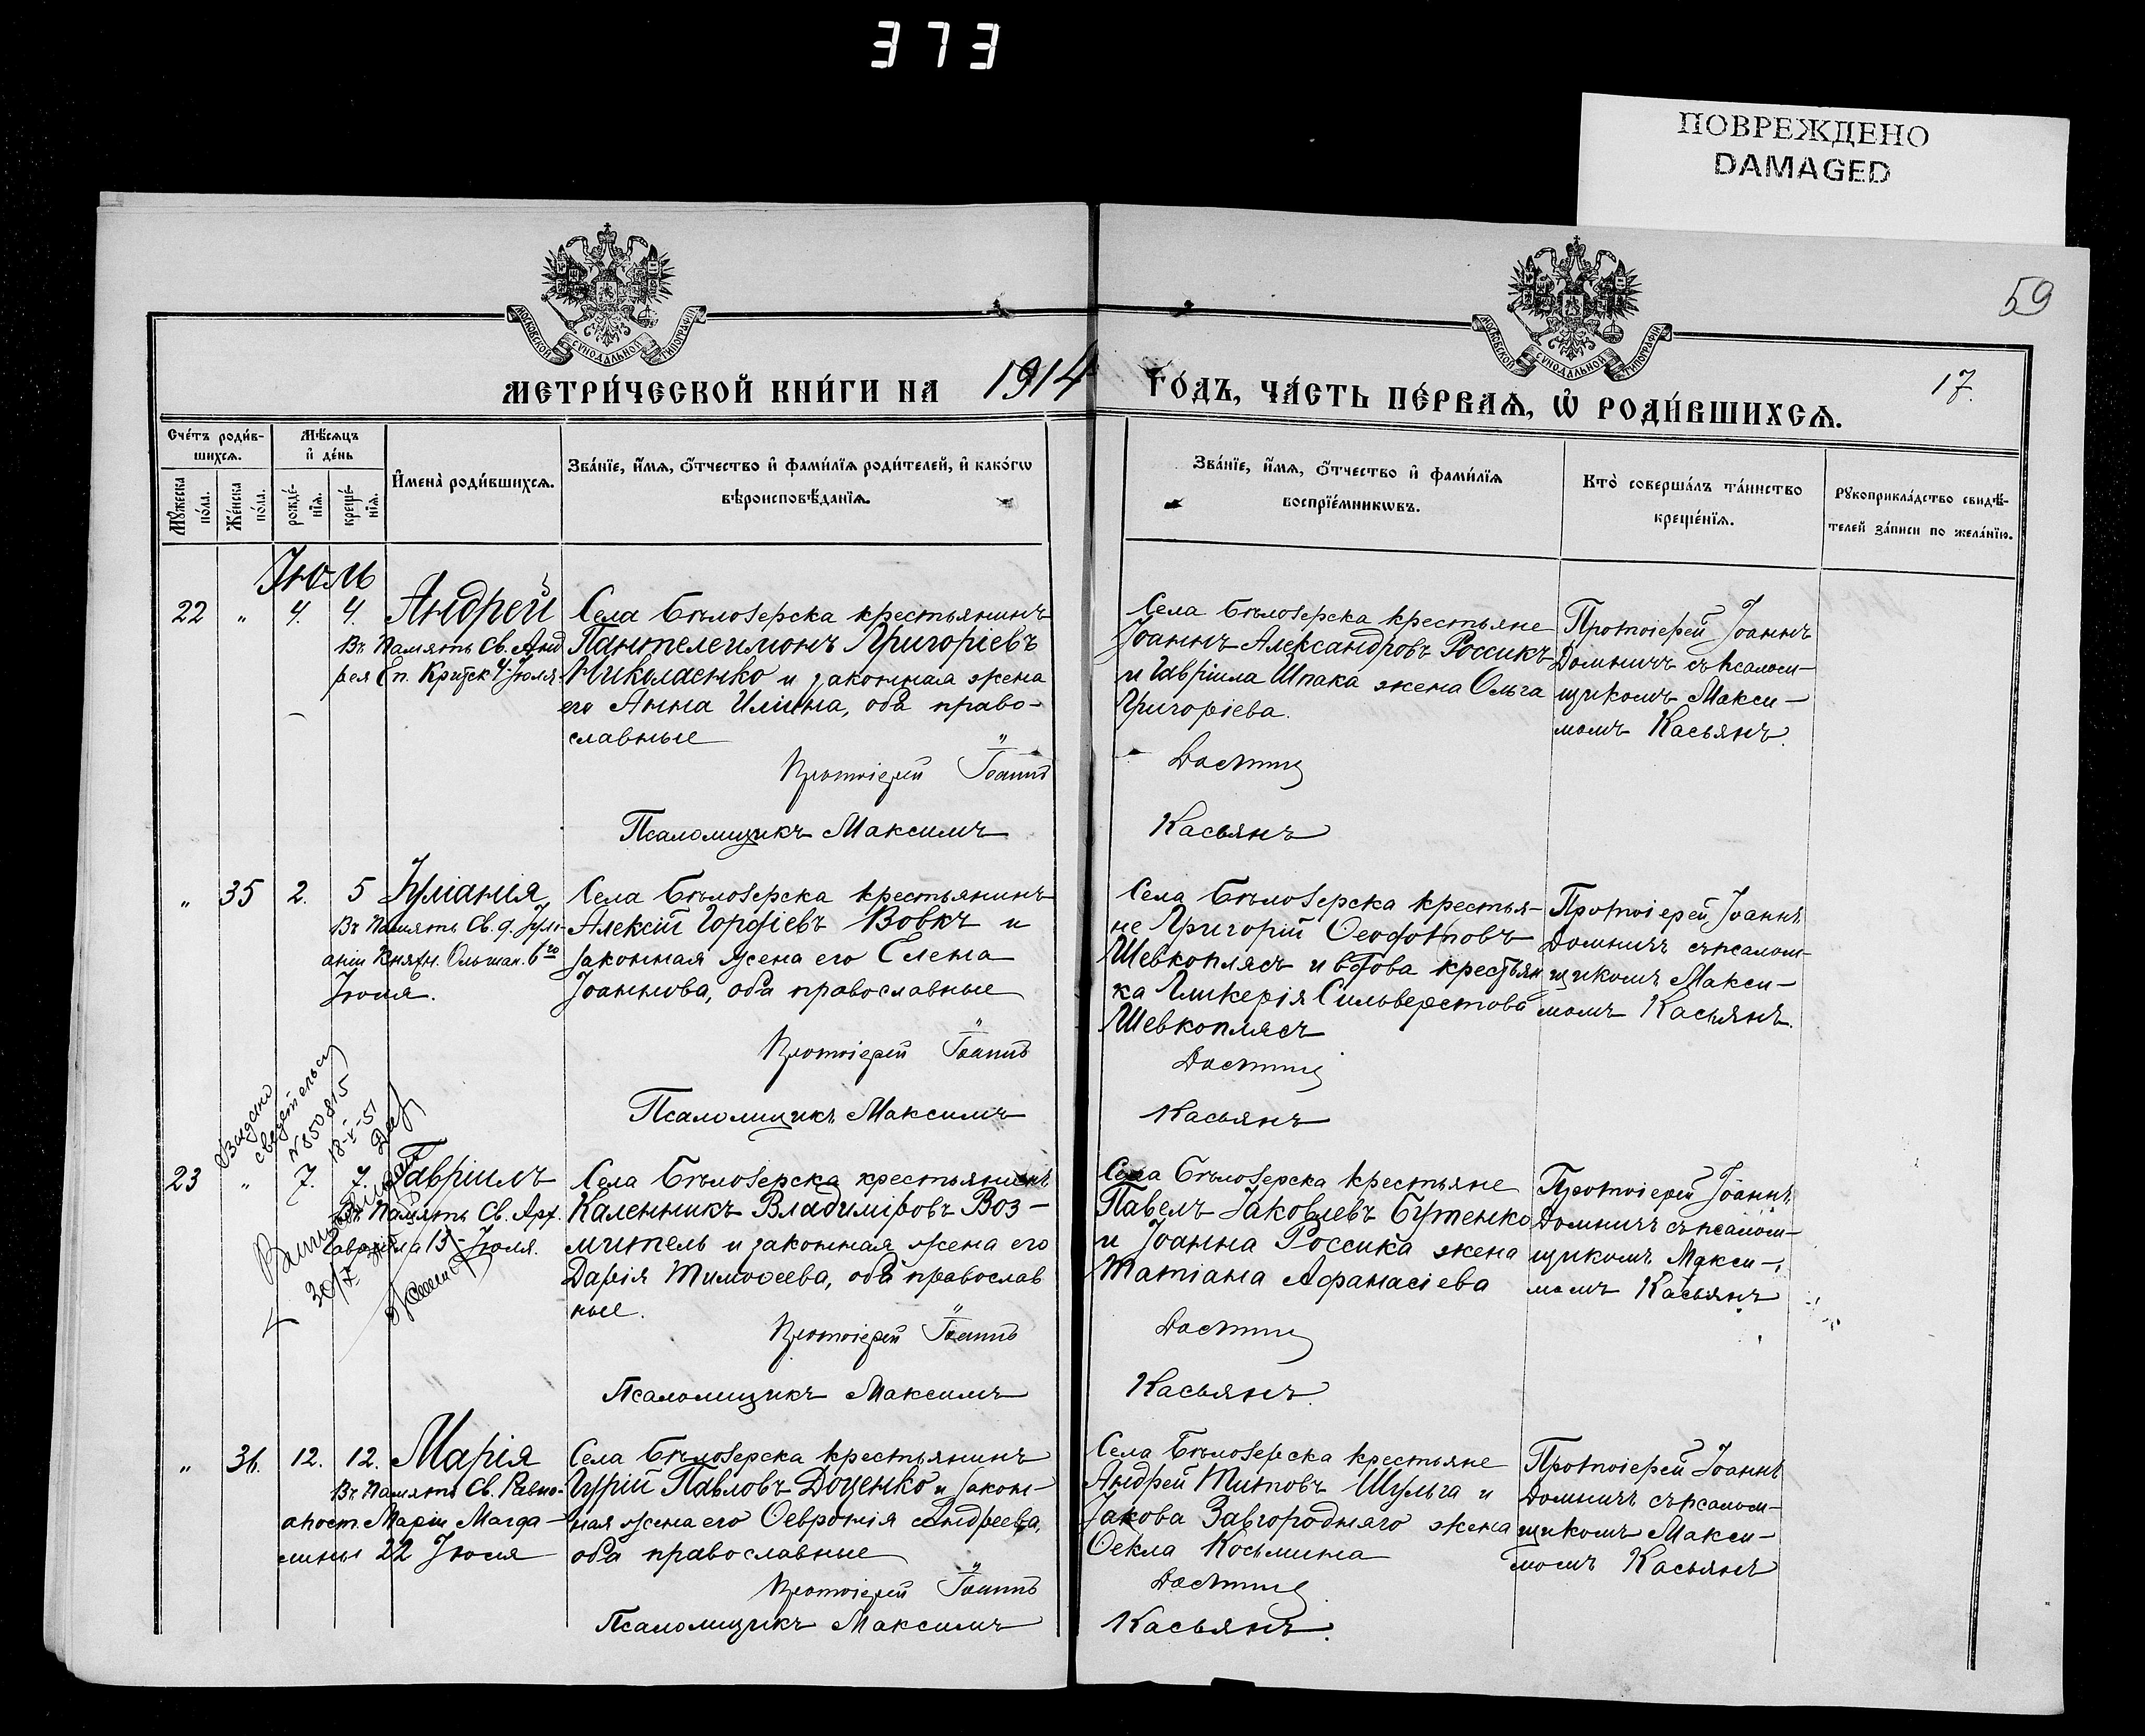 373
ПОВРЕЖДЕНО
DAMAGED
59
МОСКОВСКОЙ СУНОДАЛЬНОЙ ТИПОГРАФІИ
МОСКОВСКОЙ СУНОДАЛЬНОЙ ТИПОГРАФІИ
МЕТРИ́ЧЕСКОЙ КНИ́ГИ НА 1914 ГО́ДЪ, ЧА́СТЬ ПЕ́РВАѦ, Ѡ҆ РОДИ́ВШИХСѦ.
17.
Сче́тъ роди́в-
шихсѧ.
Мꙋ́жеска по́ла.
Же́нска по́ла.
Мѣ́сѧцъ и҆ де́нь
рожде́-нїѧ.
креще́-нїѧ.
И҆мена̀ роди́вшихсѧ.
Зва́нїе, и҆́мѧ, ѻ҆́тчество и҆ фами́лїѧ роди́телей, и҆ како́гѡ
вѣроисповѣ́данїѧ.
Зва́нїе, и҆́мѧ, ѻ҆́тчество и҆ фами́лїѧ
воспрїе́мникѡвъ.
Кто̀ соверша́лъ та́инство
креще́нїѧ.
Рꙋкоприкла́дство свидѣ́-
телей за́писи по жела́нїю.
Іюль
22 " 4. 4. Андрей
Въ память Св. Анд
рея Еп. Критск 4. Іюля
Села Бѣлозерска крестьянинъ
Пантелеимонъ Григоріевъ
Николаенко и законная жена
его Анна Илиина, оба право-
славные
Протоіерей Іоаннъ
Псаломщикъ Максимъ
Села Бѣлозерска крестьяне
Іоаннъ Александровъ Россикъ
и Гавріила Шпака жена Ольга
Григоріева.
Домничъ
Касьянъ
Протоіерей Іоаннъ
Домничъ съ псалом-
щикомъ Макси-
момъ Касьянъ.
" 35 2. 5 Іуліанія,
Въ память Св. д. Іулі-
аніи Княжн. Ольшан. 6го
Іюля.
Села Бѣлозерска крестьянинъ
Алексій Гордіевъ Вовкъ и
законная жена его Елена
Іоаннова, оба православные
Протоіерей Іоаннъ
Псаломщикъ Максимъ
Села Бѣлозерска крестья-
не Григорій Ѳеодотовъ
Шевкоплясъ и вдова крестьян
ка Гликерія Сильверстова
Шевкоплясъ
Домничъ
Касьянъ
Протоіерей Іоаннъ
Домничъ съ псалом-
щикомъ Макси-
момъ Касьянъ.
Выдано
свидетельс
N 850815
18-V-51
23 " 7. 7. Гавріилъ
Въ память Св. Арх.
Гавріила 13 Іюля.
Села Бѣлозерска крестьянинъ
Каленникъ Владиміровъ Воз-
митель и законная жена его
Дарія Тимоѳеева, оба православ
ные.
Протоіерей Іоаннъ
Псаломщикъ Максимъ
Села Бѣлозерска крестьяне
Павелъ Іаковлевъ Бутенко
и Іоанна Россика жена
Татіана Афанасіева
Домничъ
Касьянъ.
Протоіерей Іоаннъ
Домничъ съ псалом-
щикомъ Макси-
момъ Касьянъ
" 36. 12. 12. Марія
Въ память Св. Равно-
апост. Маріи Магда-
лины 22 Іюля
Села Бѣлозерска крестьянинъ
Гурій Павловъ Доценко и закон-
ная жена его Ѳевронія Андреева,
оба православные
Протоіерей Іоаннъ
Псаломщикъ Максимъ
Села Бѣлозерска крестьяне
Андрей Титовъ Шульга и
Іакова Завгородняго жена
Ѳекла Косьмина
Домничъ
Касьянъ.
Протоіерей Іоаннъ
Домничъ съ псалом-
щикомъ Макси-
момъ Касьянъ